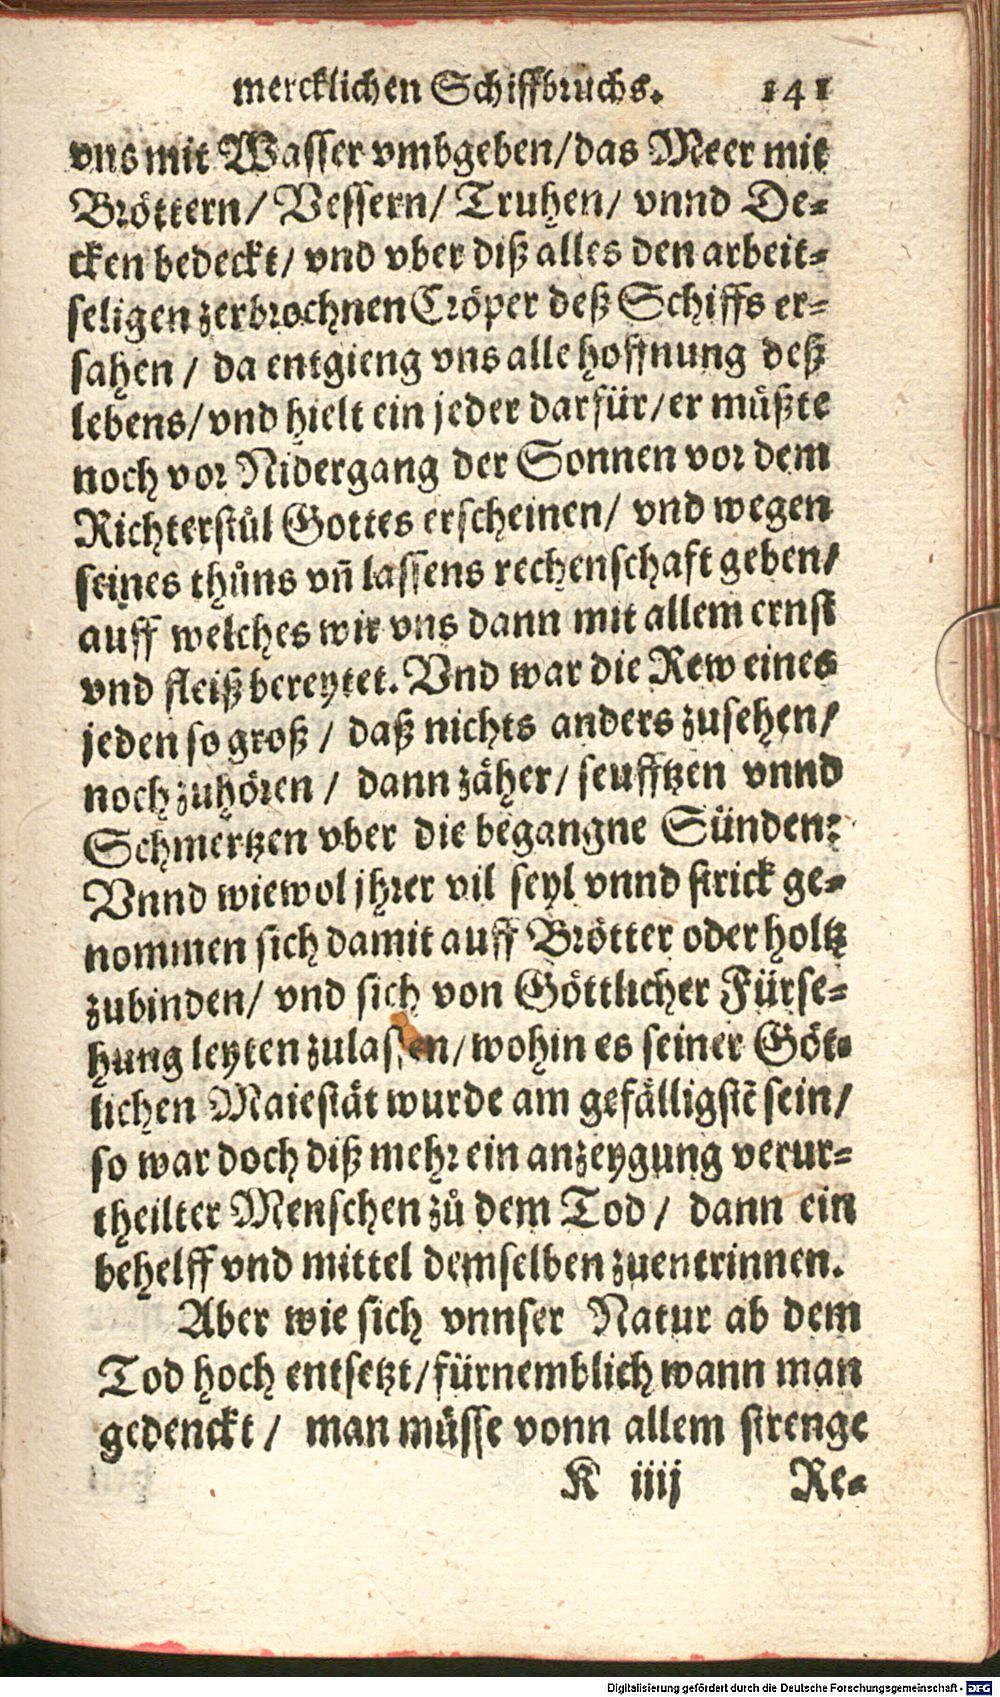 mercklichen Schiffbruchs. 141
vns mit Wasser vmbgeben/das Meer mit
Bröttern/ Vessern/ Truhen/ vnnd De-
cken bedeckt/ vnd vber diß alles den arbeit-
seligen zerbrochnen Cröper deß Schiffs er-
sahen / da entgieng vns alle hoffnung deß
lebens/ vnd hielt ein jeder darfür/ er müßte
noch vor Nidergang der Sonnen vor dem
Richterstůl Gottes erscheinen/ vnd wegen
seines thůns vn̄ lassens rechenschaft geben/
auff welches wir vns dann mit allem ernst
vnd fleiß bereytet. Vnd war die Rew eines
jeden so groß / daß nichts anders zusehen/
noch zuhören / dann zäher/ seufftzen vnnd
Schmertzen vber die begangne Sünden:
Vnnd wiewol jhrer vil seyl vnnd strick ge-
nommen sich damit auff Brötter oder holtz
zubinden/ vnd sich von Göttlicher Fürse-
hung leyten zulassen/ wohin es seiner Göt-
lichen Maiestät wurde am gefälligstē sein/
so war doch diß mehr ein anzeygung verur-
theilter Menschen zů dem Tod / dann ein
behelff vnd mittel demselben zuentrinnen.
Aber wie sich vnnser Natur ab dem
Tod hoch entsetzt/ fürnemblich wann man
gedenckt / man müsse vonn allem strenge
K iiij Re-
Digitalisierung gefördert durch die Deutsche Forschungsgemeinschaft - DFG